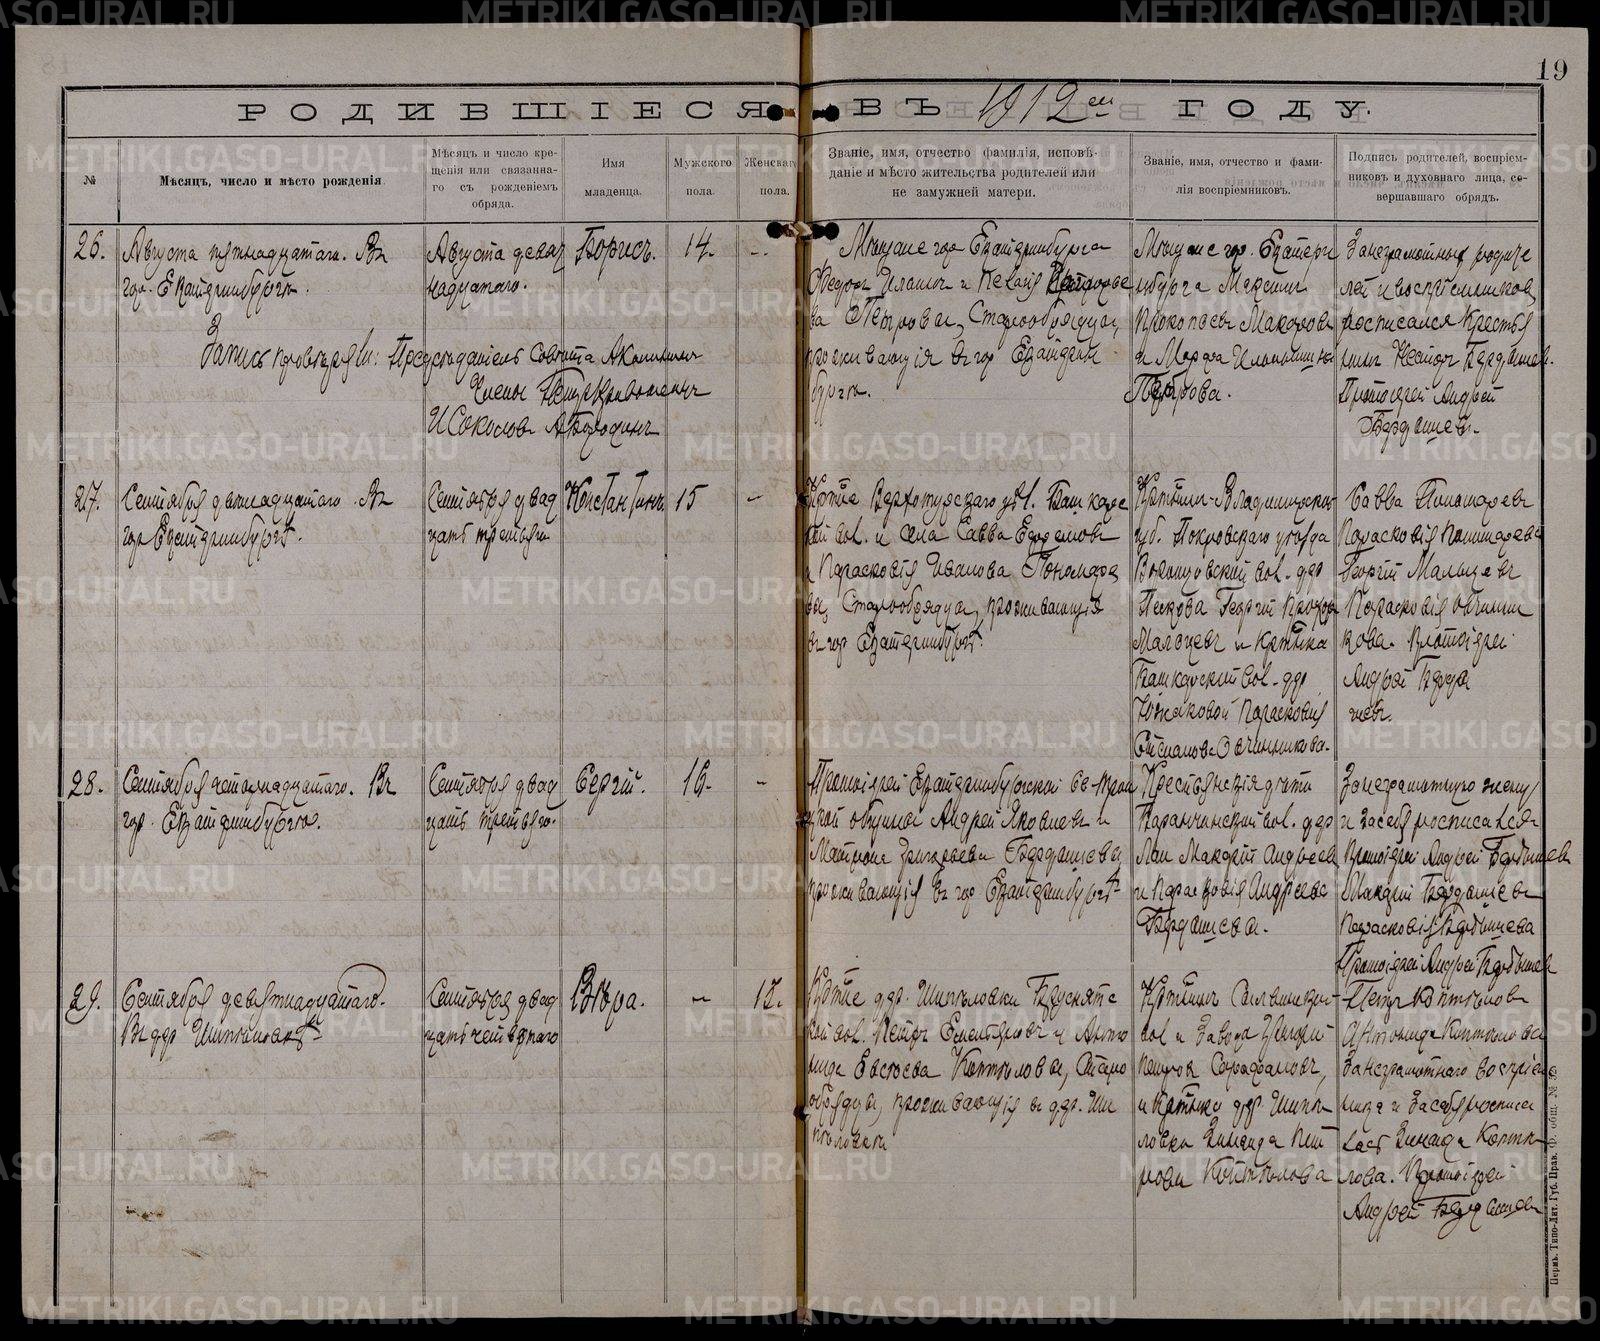 19
РОДИВШІЕСЯ ВЪ 1912 ГОДУ.
№
Мѣсяцъ, число и мѣсто рожденія
Мѣсяцъ и число кре-
щенія или связанна-
го съ рожденіемъ
обряда.
Имя
младенца.
Мужского
пола.
Женскаго
пола.
Званіе, имя, отчество фамилія, исповѣ-
даніе и мѣсто жительства родителей или
не замужней матери.
Званіе, имя, отчество и фами-
лія воспріемниковъ.
Подпись родителей, воспріем-
никовъ и духовнаго лица, со-
вершавшаго обрядъ.
26.
Августа пятнадцатаго. Въ
гор. Екатеринбургѣ.
Августа девят
надцатаго.
Борисъ.
14.
Мѣщане гор Екатеринбурга
Петровы, Старообрядцы,
проживающія въ гор Екатерин
бургѣ.
Мѣщане гор. Екатери
нбурга Максимъ
Прокопьевъ Макаровъ
и Марфа
Петрова.
За неграмотныхъ родите
лей и воспріемниковъ
росписался Крестья
нинъ
Протоіерей Андрей
Бердышевъ.
Запись провѣряли: Предсѣдатель Совѣта
Члены
И Соколовъ
27.
Сентября двенадцатаго Въ
гор Екатеринбургѣ.
Сентября двад
цать третьяго
Константинъ.
15
Кр-не Верхотурскаго уѣз. Башкарс
кой вол. и села Савва Ефремовъ
и Парасковія Иванова Пономаре
вы, Старообрядцы, проживающія
въ гор Екатеринбургѣ.
Кр-нинъ Владимірской
губ. Покровскаго уѣзда
вол. дер
Пескова Георгій Прохор
Мальцевъ и Кр-нка
Башкарской вол. дер
Южаковой Парасковія
Степанова Овчинникова.
Савва Пономаревъ
Парасковія Пономарева
Георгій Мальцевъ
Парасковія Овчинни
кова. Протоіерей
Андрей Берды
шевъ.
28.
Сентября четырнадцатаго. Въ
гор. Екатеринбургѣ.
Сентября двад
цать третьяго.
Сергій.
16.
Протоіерей Екатеринбургской Св-Трои
цкой общины Андрей Яковлевъ и
Матрона Григорьева Бердышевы
проживающія въ гор Екатеринбургѣ
Крестьянскія дѣти
Баранчинской вол. дер
Лаи Макарій Андреевъ
и Парасковія Андреева
Бердышевы.
За неграмотную жену
и за себя росписался
Протоіерей Андрей Бердышевъ
Макарій Бердышевъ
Парасковія Бердышева
Протоіерей Андрей Бердышевъ
29.
Сентября девятнадцатаго.
Въ дер Шипѣловкѣ
Сентября двад
цать четвертаго
Вѣра.
12.
Кр-не дер. Шипѣловки Бруснятс
кой вол. Петръ Елентьевъ и Анто
нида Евсѣева Коптѣловы, Старо
обрядцы, проживающія въ дер. Ши
пѣловкѣ
вол и завода Григорій
Петровъ Сарафановъ,
и Кр-нка дер. Шипѣ
ловки Зинаида Пет
рова Коптѣлова
Петръ Коптѣловъ
Антонида Коптѣлова
За неграмотнаго воспріем
ника и за себя росписа
лась Зинаида Коптѣ
лова. Протоіерей
Андрей Бердышевъ
Пермь. Типо-Лит. Губ. Прав.
METRIKI.GASO-URAL.RU